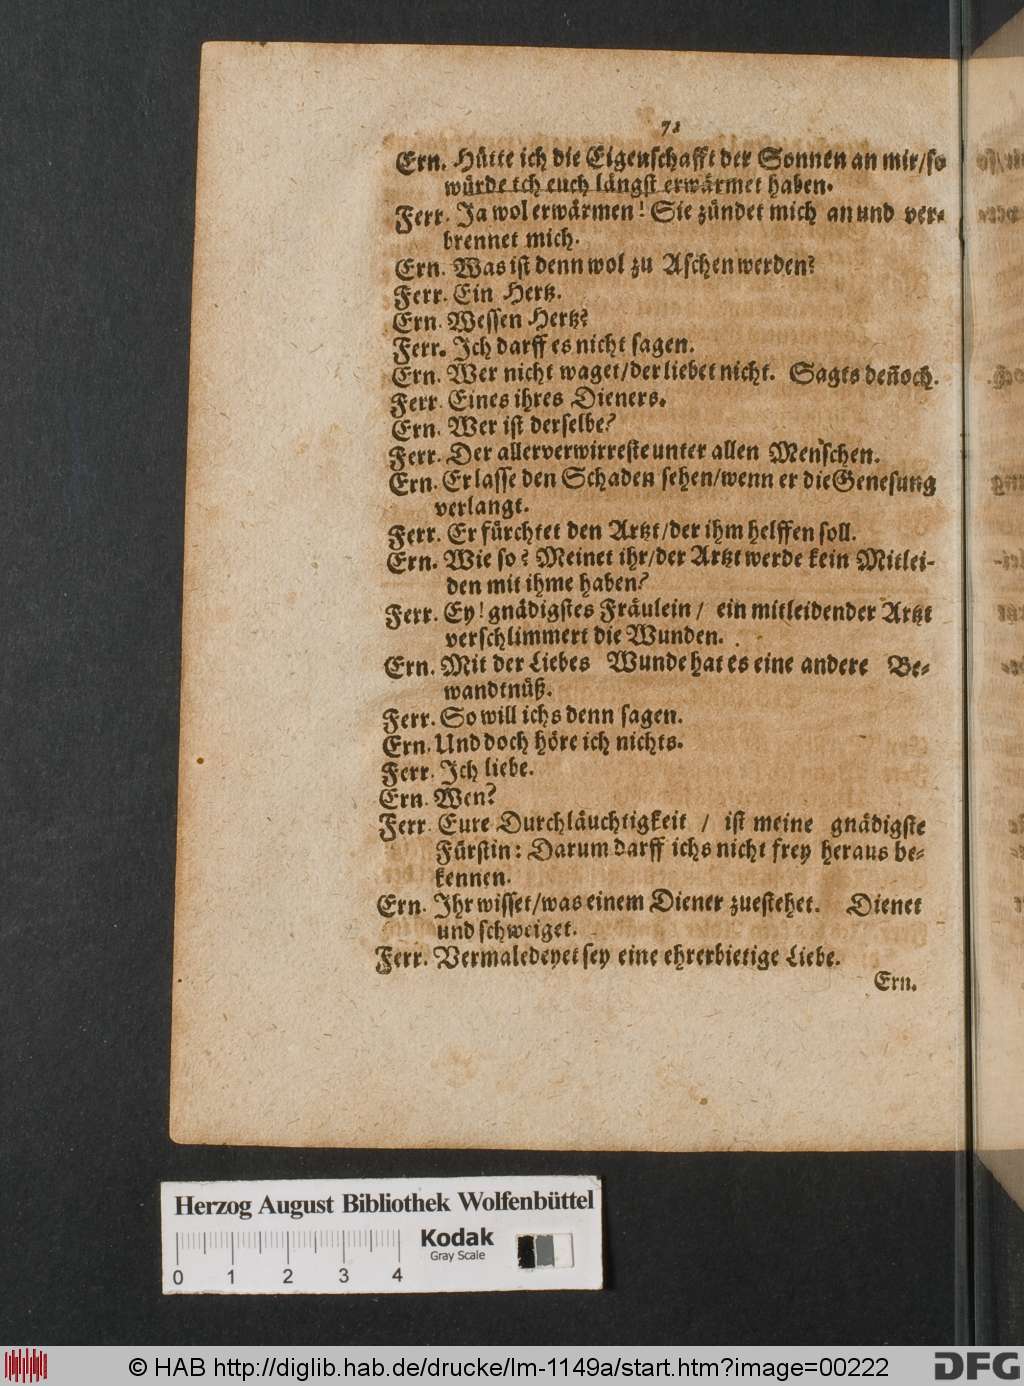 72
Ern. Hätte ich die Eigenschafft der Sonnen an mir/so
würde ich euch längst erwärmet haben.
Ferr. Ja wol erwärmen! Sie zündet mich an und ver-
brennet mich.
Ern. Was ist denn wol zu Aschen werden?
Ferr. Ein Hertz.
Ern. Wessen Hertz?
Ferr. Ich darff es nicht sagen.
Ern. Wer nicht waget/der liebet nicht. Sagts den̄och.
Ferr. Eines ihres Dieners.
Ern. Wer ist derselbe?
Ferr. Der allerverwirreste unter allen Menschen.
Ern. Er lasse den Schaden sehen/wenn er die Genesung
verlangt.
Ferr. Er fürchtet den Artzt/der ihm helffen soll.
Ern. Wie so? Meinet ihr/der Artzt werde kein Mitlei-
den mit ihme haben?
Ferr. Ey! gnädigstes Fräulein/ ein mitleidender Artzt
verschlimmert die Wunden.
Ern. Mit der Liebes Wunde hat es eine andere Be-
wandtnüß.
Ferr. So will ichs denn sagen.
Ern. Und doch höre ich nichts.
Ferr. Ich liebe.
Ern. Wen?
Ferr. Eure Durchläuchtigkeit / ist meine gnädigste
Fürstin: Darum darff ichs nicht frey heraus be-
kennen.
Ern. Ihr wisset/was einem Diener zuestehet. Dienet
und schweiget.
Ferr. Vermaledeyet sey eine ehrerbietige Liebe.
Ern.
Herzog August Bibliothek Wolfenbüttel
Kodak
Gray Scale
0 1 2 3 4
© HAB http://diglib.hab.de/drucke/lm-1149a/start.htm?image=00222
DFG